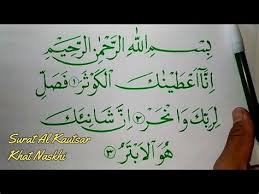 بِسْمِ اللهِ الرَّحْمٰنِ الرَّحِيْمِ
اِنَّا اَعْطَيْنٰكَ الْكَوْثَرَ ۝١ فَصَلِّ
لِرَبِّكَ وَانْحَرْ ۝٢ اِنَّ شَانِئَكَ
هُوَ الْاَبْتَرُ ۝٣
Surat Al Kautsar
Khat Naskhi